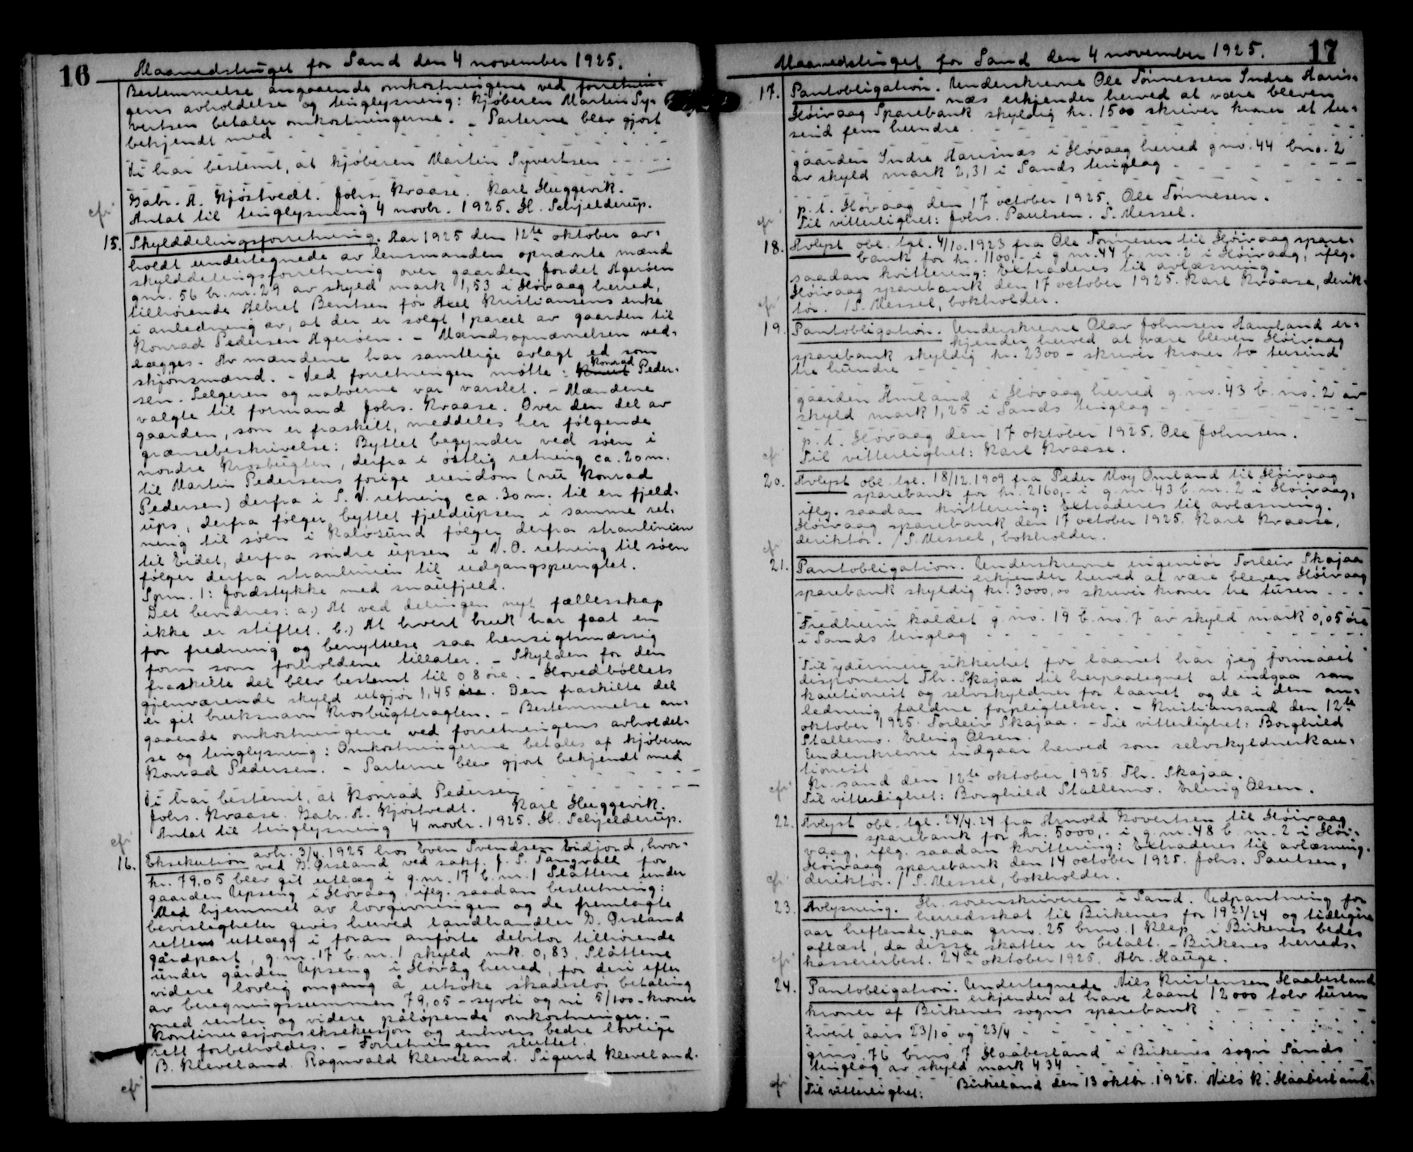 16
Maanedstinget for Sand den 4 november 1925.
Bestemmelse angaaende omkostningene ved forretnin-
gens avholdelse og tinglysning: Kjøberen Martin Sy-
vertsen betaler omkostningerne. - Parterne blev gjort
bekjendt med . . .
Vi har bestemt, at kjøberen Martin Syvertsen . . .
Gabr. A. Kjøstvedt. Johs. Kvaase. Karl Huggevik.
Antat til tinglysning 4 novbr. 1925. H. Schjelderup.
15. Skylddelingsforretning. Aar 1925 den 12te oktober av-
holdt undertegnede av lensmanden opnævnte mænd
skylddelingsforretning over gaarden Jordet Agerøen
g.nr. 56 br.nr. 29 av skyld mark 1,53 i Høvaag herred,
tilhørende Albret Bentsen før Axel Kristiansens enke
i anledning av, at der er solgt 1 parcel av gaarden til
Konrad Pedersen Agerøen. - Mændsopnævnelsen ved-
lægges. Av mændene har samtlige avlagt ed som
skjønsmænd. - Ved forretningen møtte: Knut Konrad Peder-
sen. Selgeren og naboerne var varslet. - Mændene
valgte til formand Johs. Kvaase. Over den del av
gaarden, som er fraskilt, meddeles her følgende
grænsebeskrivelse: Byttet begynder ved søen i
nordre Krosbugten, derfra i østlig retning ca. 20 m.
til Martin Pedersens forige eiendom (nu Konrad
Pedersen) derfra i S.V. retning ca. 30 m. til en fjeld-
ups, derfra følger byttet fjeldupsen i samme ret-
ning til søen i Kalvsund følger derfra stranlinien
til Eidet, derfra søndre upsen i N.O. retning til søen
følger derfra stranlinien til udgangspunctet.
Sprn. 1: Jordstykke med snaufjeld.
Det bevidnes: a.) At ved delingen nyt fællesskap
ikke er stiftet. b.) At hvert bruk har faat en
for fredning og benyttelse saa hensigtsmæssig
form som forholdene tillater. - Skylden for den
fraskilte del blev bestemt til 08 øre. - Hovedbøllets
gjenværende skyld utgjør 1,45 øre. Den fraskilte del
er git bruksnavn Krosbugttragten. - Bestemmelse an-
gaaende omkostningene ved forretningens avholdel-
se og tinglysning: Omkostningerne betales af kjøberen
Konrad Pedersen. - Parterne blev gjort bekjendt med
Vi har bestemt, at Konrad Pedersen . . .
Johs. Kvaase. Gabr. A. Kjøstvedt. Karl Huggevik.
Antat til tinglysning 4 novbr. 1925. H. Schjelderup.
16. Eksekution avh. 3/4 1925 hos Even Svendsen Eidjord, hvor-
ved D. Øisland ved sakf. J. S. Tangvall for
kr. 79,05 blev git utlæg i g.nr. 17 b.nr. 1 Slåttene under
gaarden Upseng i Høvaag, iflg. saadan beslutning:
Med hjemmel av lovgivningen og de fremlagte
bevisligheter gives herved landhandler D. Øisland
rettens utlægg i foran anførte debitor tilhørende
gårdpart, g.nr. 17 b.nr. 1 skyld mk. 0,83, Slåttene
under gården Upseng i Høvåg herred, for deri efter
videre lovlig omgang å utsøke skadesløs betaling
av beregningssummen 79,05 - sytti og ni 5/100 - kroner
med renter og videre påløpende omkostninger. -
Kontinuasjonseksekusjon og enhvers bedre lovlige
rett forbeholdes. - Forretningen sluttet.
B. Kleveland. Ragnvald Kleveland. Sigurd Kleveland.
17
Maanedstinget for Sand den 4 november 1925.
17. Pantobligation. Underskrevne Ole Tønnesen Indre Haris-
næs erkjender herved at være bleven
Høivaag Sparebank skyldig kr. 1500 skriver kroner et tu-
send fem hundre . . .
gaarden Indre Harisnæs i Høvaag herred g.no. 44 b.no. 2
av skyld mark 2,31 i Sands tinglag . . .
p.t. Høvaag den 17 october 1925. Ole Tønnesen.
Til vitterlighet: Johs. Paulsen. S. Messel.
18. Avlyst obl. tgl. 4/10 1923 fra Ole Tønnesen til Høivaag spare-
bank for kr. 1100,- i g.nr. 44 b.nr. 2 i Høivaag, iflg.
saadan kvittering: Extraderes til avlæsning.
Høivaag sparebank den 17 october 1925. Karl Kvaase, derik-
tør. / S. Messel, bokholder.
19. Pantobligation. Underskrevne Olav Johnsen Hamland er-
kjender herved at være bleven Høivaag
sparebank skyldig kr. 2300 - skriver kroner to tusind
tre hundre . . .
gaarden Hmland i Høivaag herred g.no. 43 b.no. 2 av
skyld mark 1,25 i Sands tinglag . . .
p.t. Høvaag den 17 oktober 1925. Ole Johnsen.
Til vitterlighet: Karl Kvaase.
20. Avlyst obl. tgl. 18/12 1909 fra Peder Moy Omland til Høivaag
sparebank for kr. 2160,- i g.nr. 43 b.nr. 2 i Høivaag,
iflg. saadan kvittering: Extraderes til avlæsning.
Høivaag sparebank den 17 october 1925. Karl Kvaase,
deriktør. / S. Messel, bokholder.
21. Pantobligation. Underskrevne ingeniør Torleiv Skajaa
erkjender herved at være bleven Høivaag
sparebank skyldig kr. 3000,00 skriver kroner tre tusen . . .
Fredheim kaldet g.no. 19 b.no. 7 av skyld mark 0,05 øre
i Sands tinglag . . .
Til ydermere sikkerhet for laanet har jeg formaaet
disponent Th. Skajaa til herpaategnet at indgaa som
kautionist og selvskyldner for laanet og de i den an-
ledning faldne forpligtelser. - Kristiansand den 12te
oktober 1925. Torleiv Skajaa. - Til vitterlighet: Borghild
Stallemo. Erling Olsen.
Underskrevne indgaar herved som selvskyldnerkau-
tionist
Kr.sand den 12te oktober 1925 Th. Skajaa.
Til vitterlighet: Borghild Stallemo. Erling Olsen.
22. Avlyst obl. tgl. 24/4.24 fra Arnold Govertsen til Høivaag
sparebank for kr. 5000,- i g.nr. 48 b.nr. 2 i Høi-
vaag, iflg. saadan kvittering: Extraderes til avlæsning.
Høivaag sparebank den 14 october 1925. Johs. Paulsen,
deriktør. / S. Messel, bokholder.
23. Avlysning. Hr. sorenskriveren i Sand. Utpantning for
herredsskat til Birkenes for 1923/24 og tidligere
aar heftende paa g.no. 25 b.no. 1 Klep i Birkenes bedes
aflæst, da disse skatter er betalt. - Birkenes herreds-
kassererbest. 24de oktober 1925. Abr. Hauge.
24. Pantobligation. Undertegnede Nils Kristensen Haabesland
erkjender at have laant 12000 tolv tusen
kroner af Birkenes sogns sparebank . . .
hvert aars 23/10 og 23/4 . . .
g.no. 76 b.no. 7 Haabesland i Birkenes sogn Sands
tinglag av skyld mark 4 34 . . .
Birkeland den 13 oktbr. 1925. Nils K. Haabesland.
Til vitterlighet: